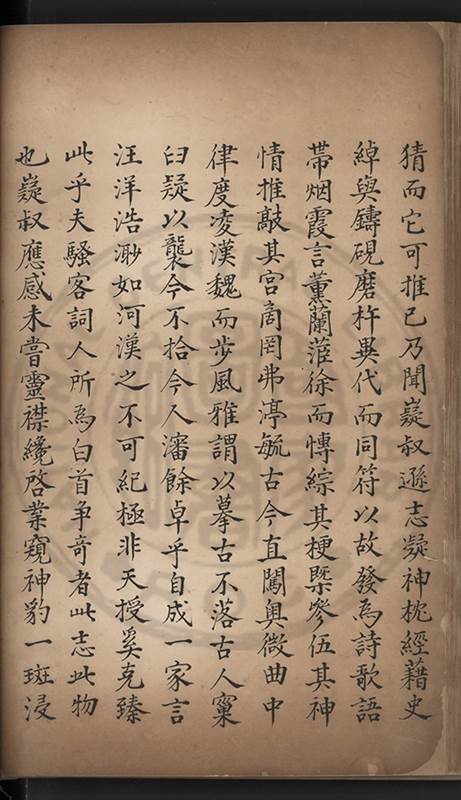 猜而它可推已乃聞嶷叔遜志凝神枕經藉史
綽與鑄硯磨杵異代而同符以故發為詩歌語
帶烟霞言薰蘭茝徐而慱綜其梗槩參伍其神
情推敲其宮商罔弗渟毓古今直闖奧微曲中
律度凌漢魏而步風雅謂以摹古不落古人窠
臼疑以襲今不拾今人瀋餘卓乎自成一家言
汪洋浩渺如河漢之不可紀極非天授奚克臻
此乎夫騷客詞人所為白首爭奇者此志此物
也嶷叔應感未嘗靈襟纔啓業窺神豹一斑浸